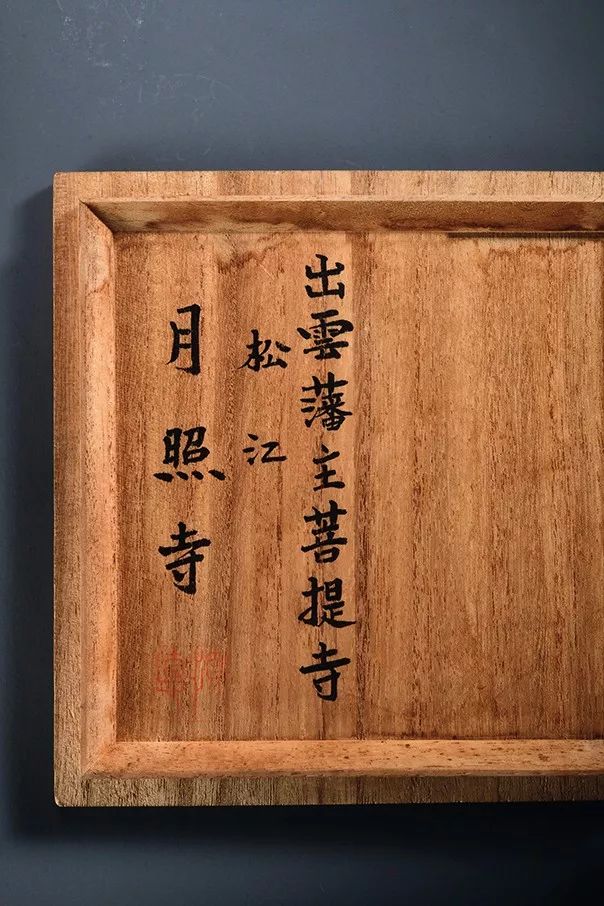 出雲藩主菩提寺
松江
月照寺